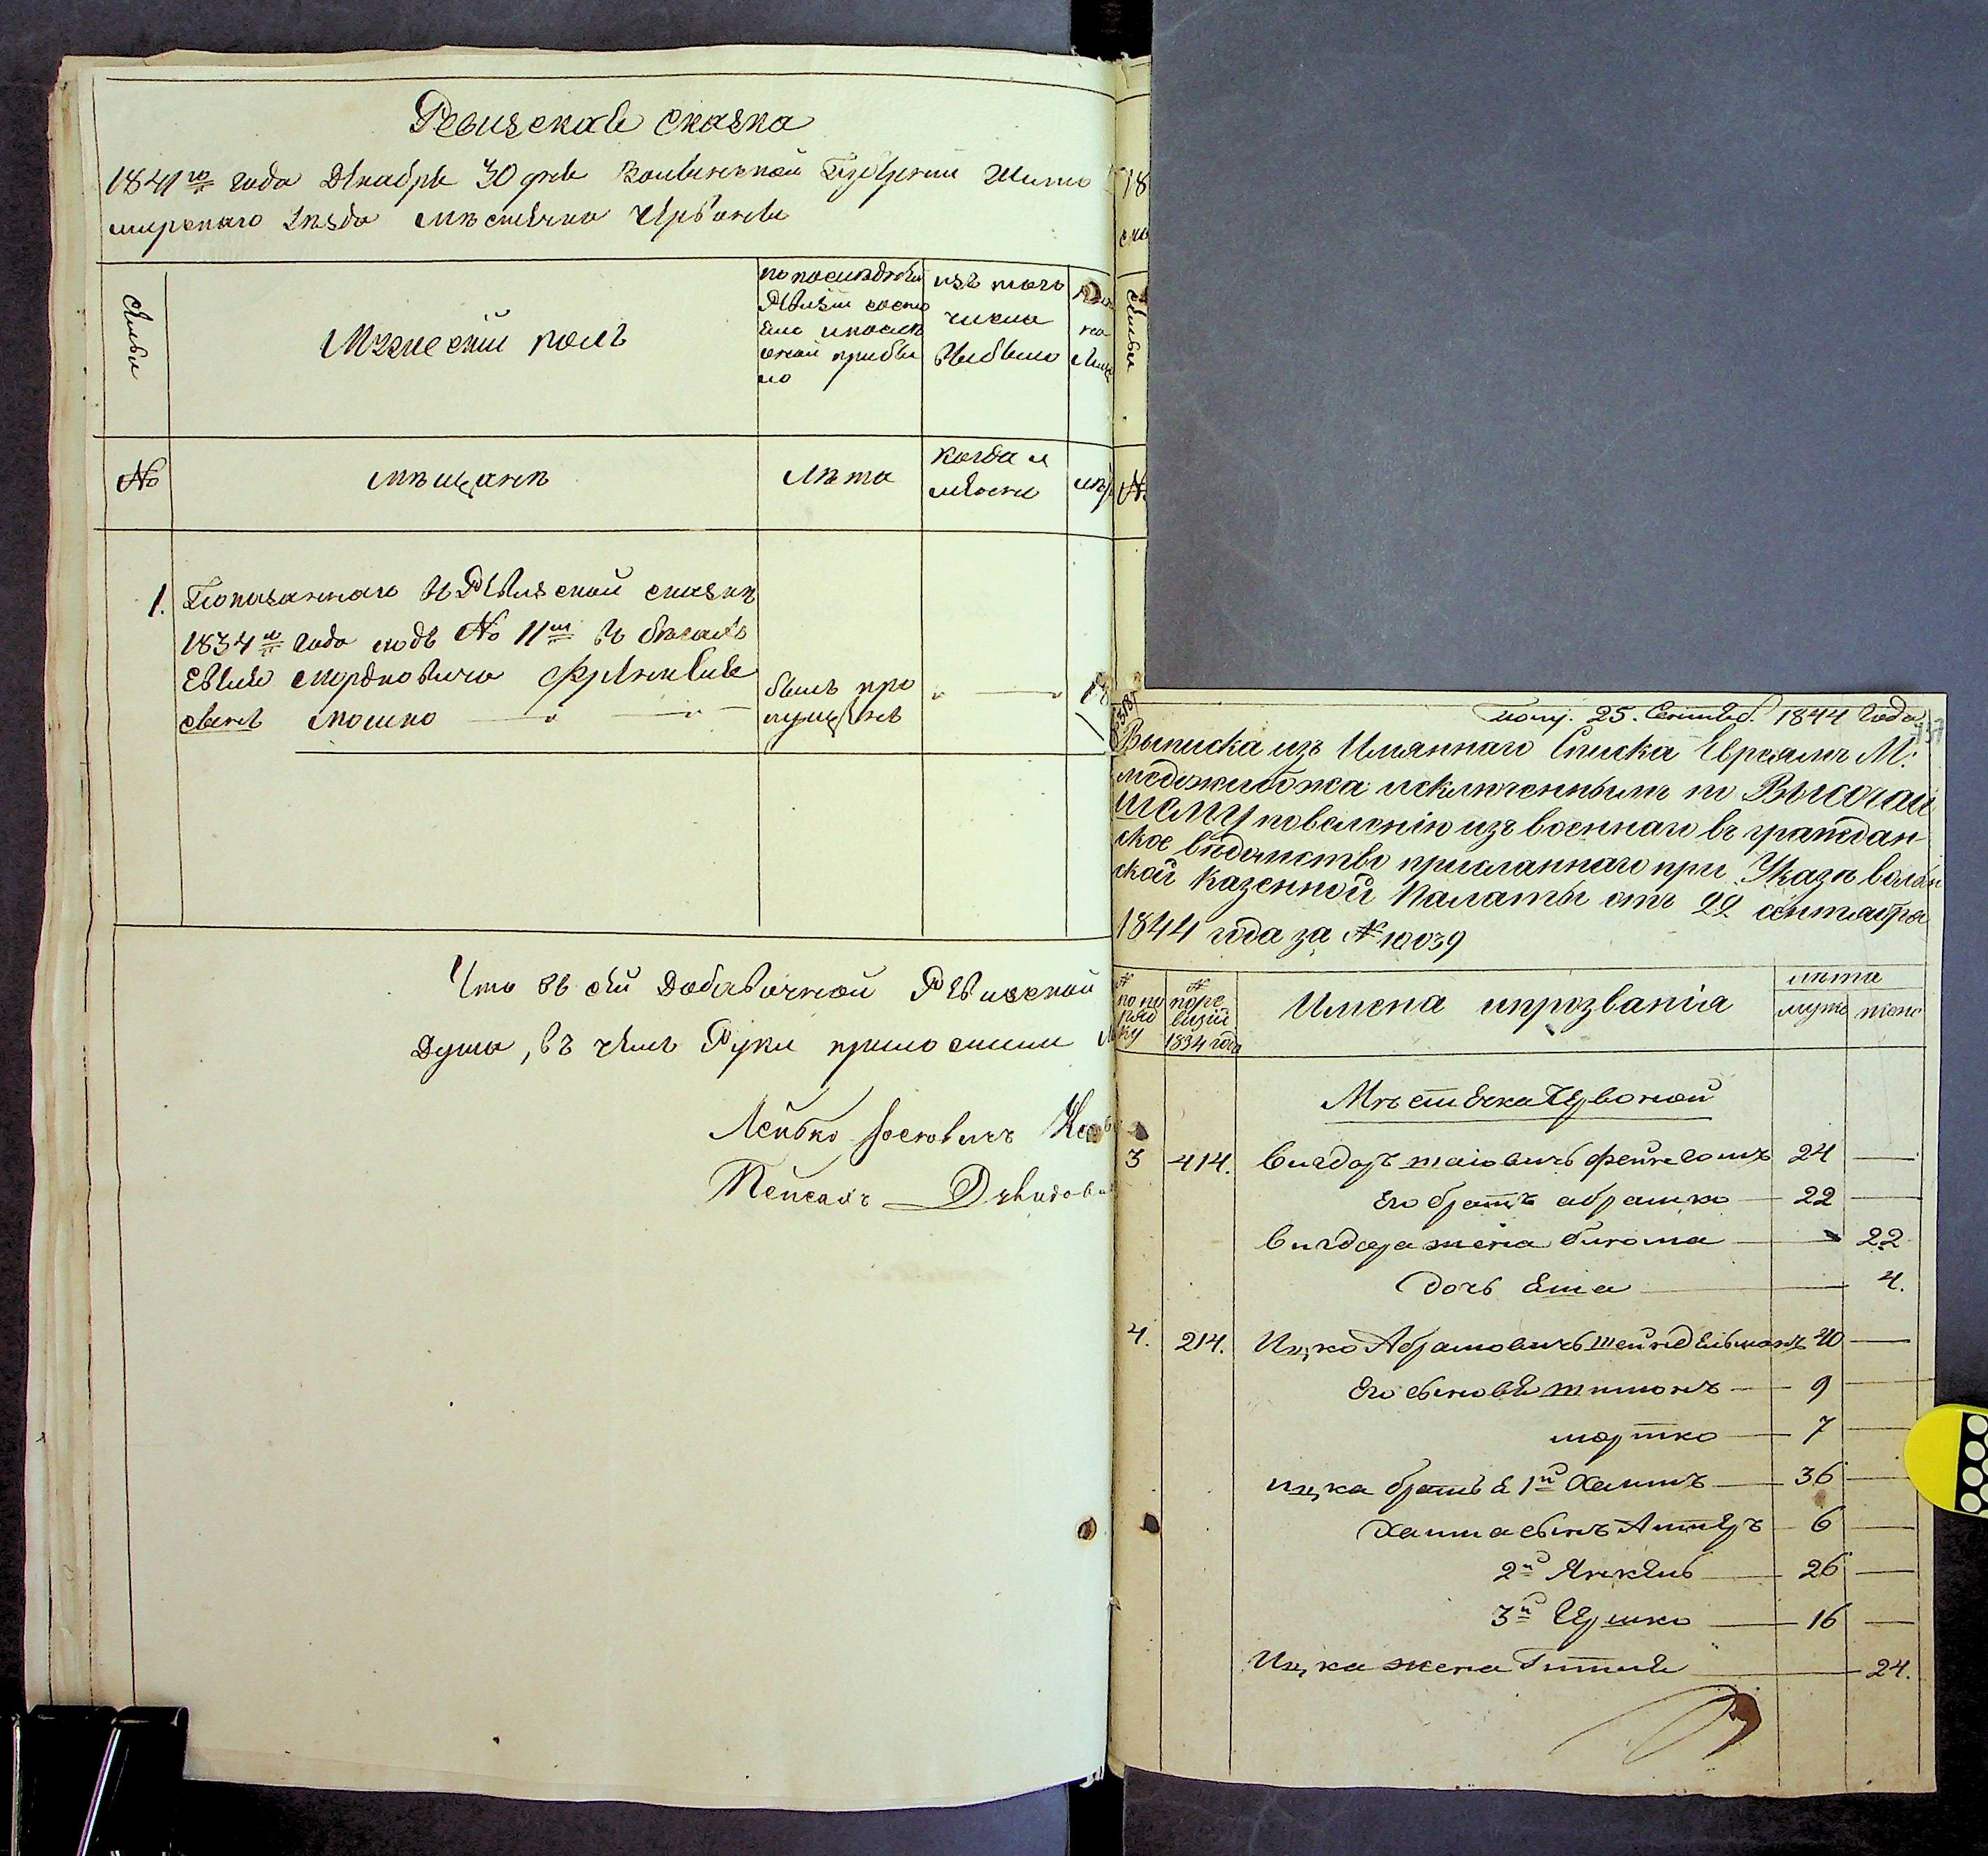 Ревизская сказка
1841го года Декабря 30 дня Волынской Губернии Жито
мирскаго уезда местечка Червоной
Семьи
Мужеский полъ
по последней
Ревизии состо
яло и после
оной прибы
ло
изъ того
числа
выбыло
на
Лиц
№
мещане
Лета
когда и
именно
1. Показаннаго въ Ревизской сказке
1834го года подъ № 11м въ бегахъ
Евеля Мордковича
сынъ Мошко
былъ про
пущенъ
18
Что въ сей добавочной Ревизской
Души, въ чемъ Руки приложили
Лейбко Іосіовичъ
Пейсахъ Давидови
Семьи
№
получ. 25. Сентяб. 1844 года
Выписка изъ Имяннаго Списка Евреямъ М:
меджибожа исключеннымъ по Высочай
шему повелѣнію изъ военнаго въ граждан
ское вѣдомство присланнаго при Указѣ волын
ской Казенной Палаты отъ 22 сентября
1844 года за № 10039
№
по по
ряд
ку
№
по ре
визіи
1834 года
Имена и прозванія
лѣта
мужс женс
Мѣстечка Червоной
3 414. Вигдоръ шаіовичъ 24
Его братъ абрамко 22
Вигдора жена 22
дочь 4.
4. 214. Ицко Абрамовичъ шейндельманъ 40
Его сыновья шимонъ 9
мортко 7
ицка братья 1й Хаимъ 36
Хаима сынъ 6
2й Янкель 26
3й Гершко 16
Ицка жена Гитля 24.